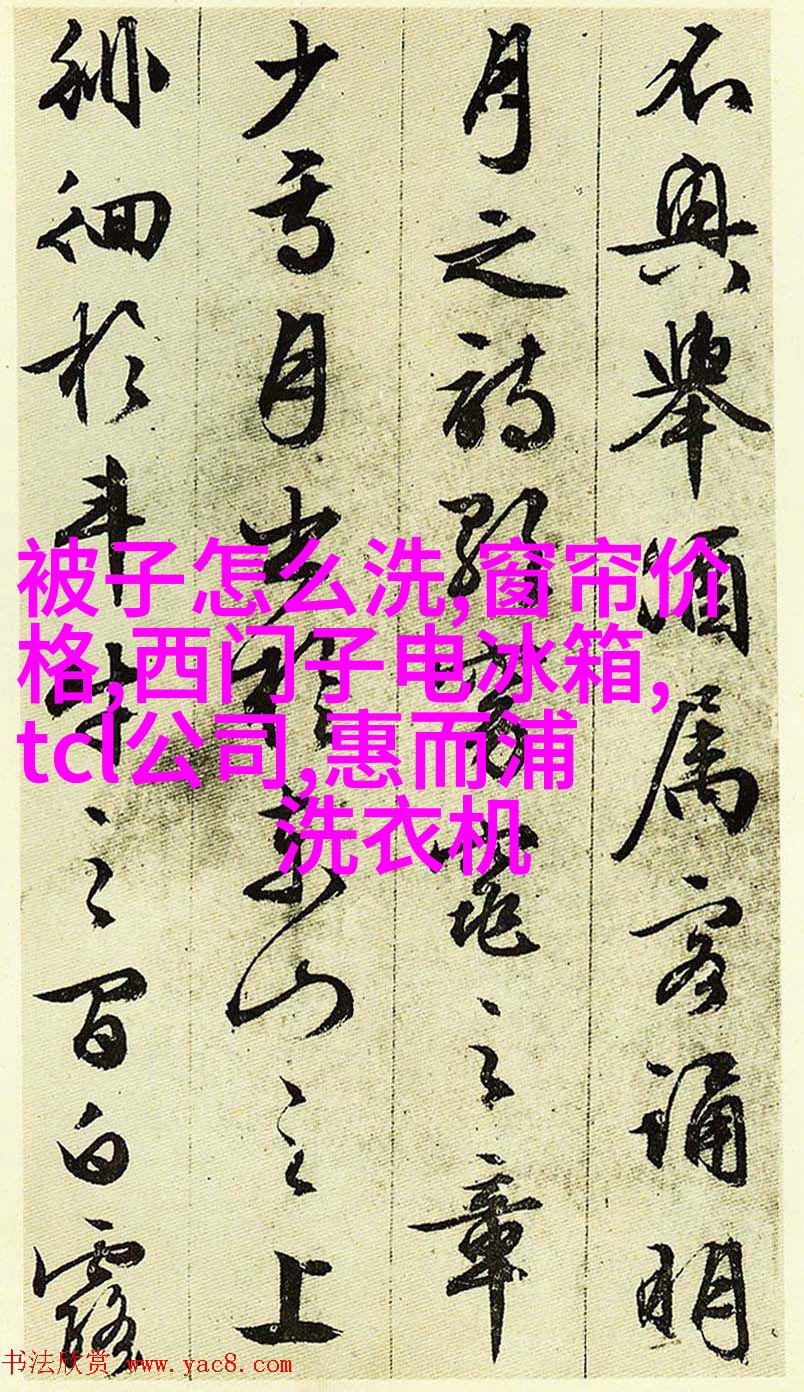 不興舉酒属客誦明
月之詩歌窈窕之章
少焉月出於東山之上
徘徊於斗牛之間白露
被子怎么洗,窗帘价
格,西门子电冰箱,
tcl公司,惠而浦
洗衣机
书法欣赏 www.yac8.com